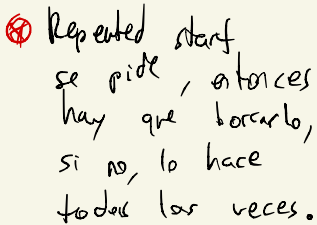 Repeated start
se pide, entonces
hay que borrarlo,
si no, lo hace
todas las veces.